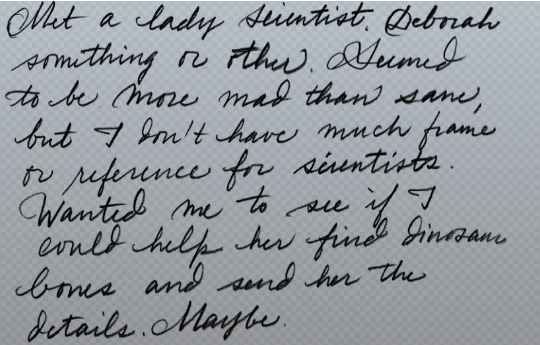 Met a lady scientist. Deborah
something or other. Seemed
to be more mad than sane,
but I don't have much frame
or reference for scientists.
Wanted me to see if I
could help her find dinosaur
bones and send her the
details. Maybe.